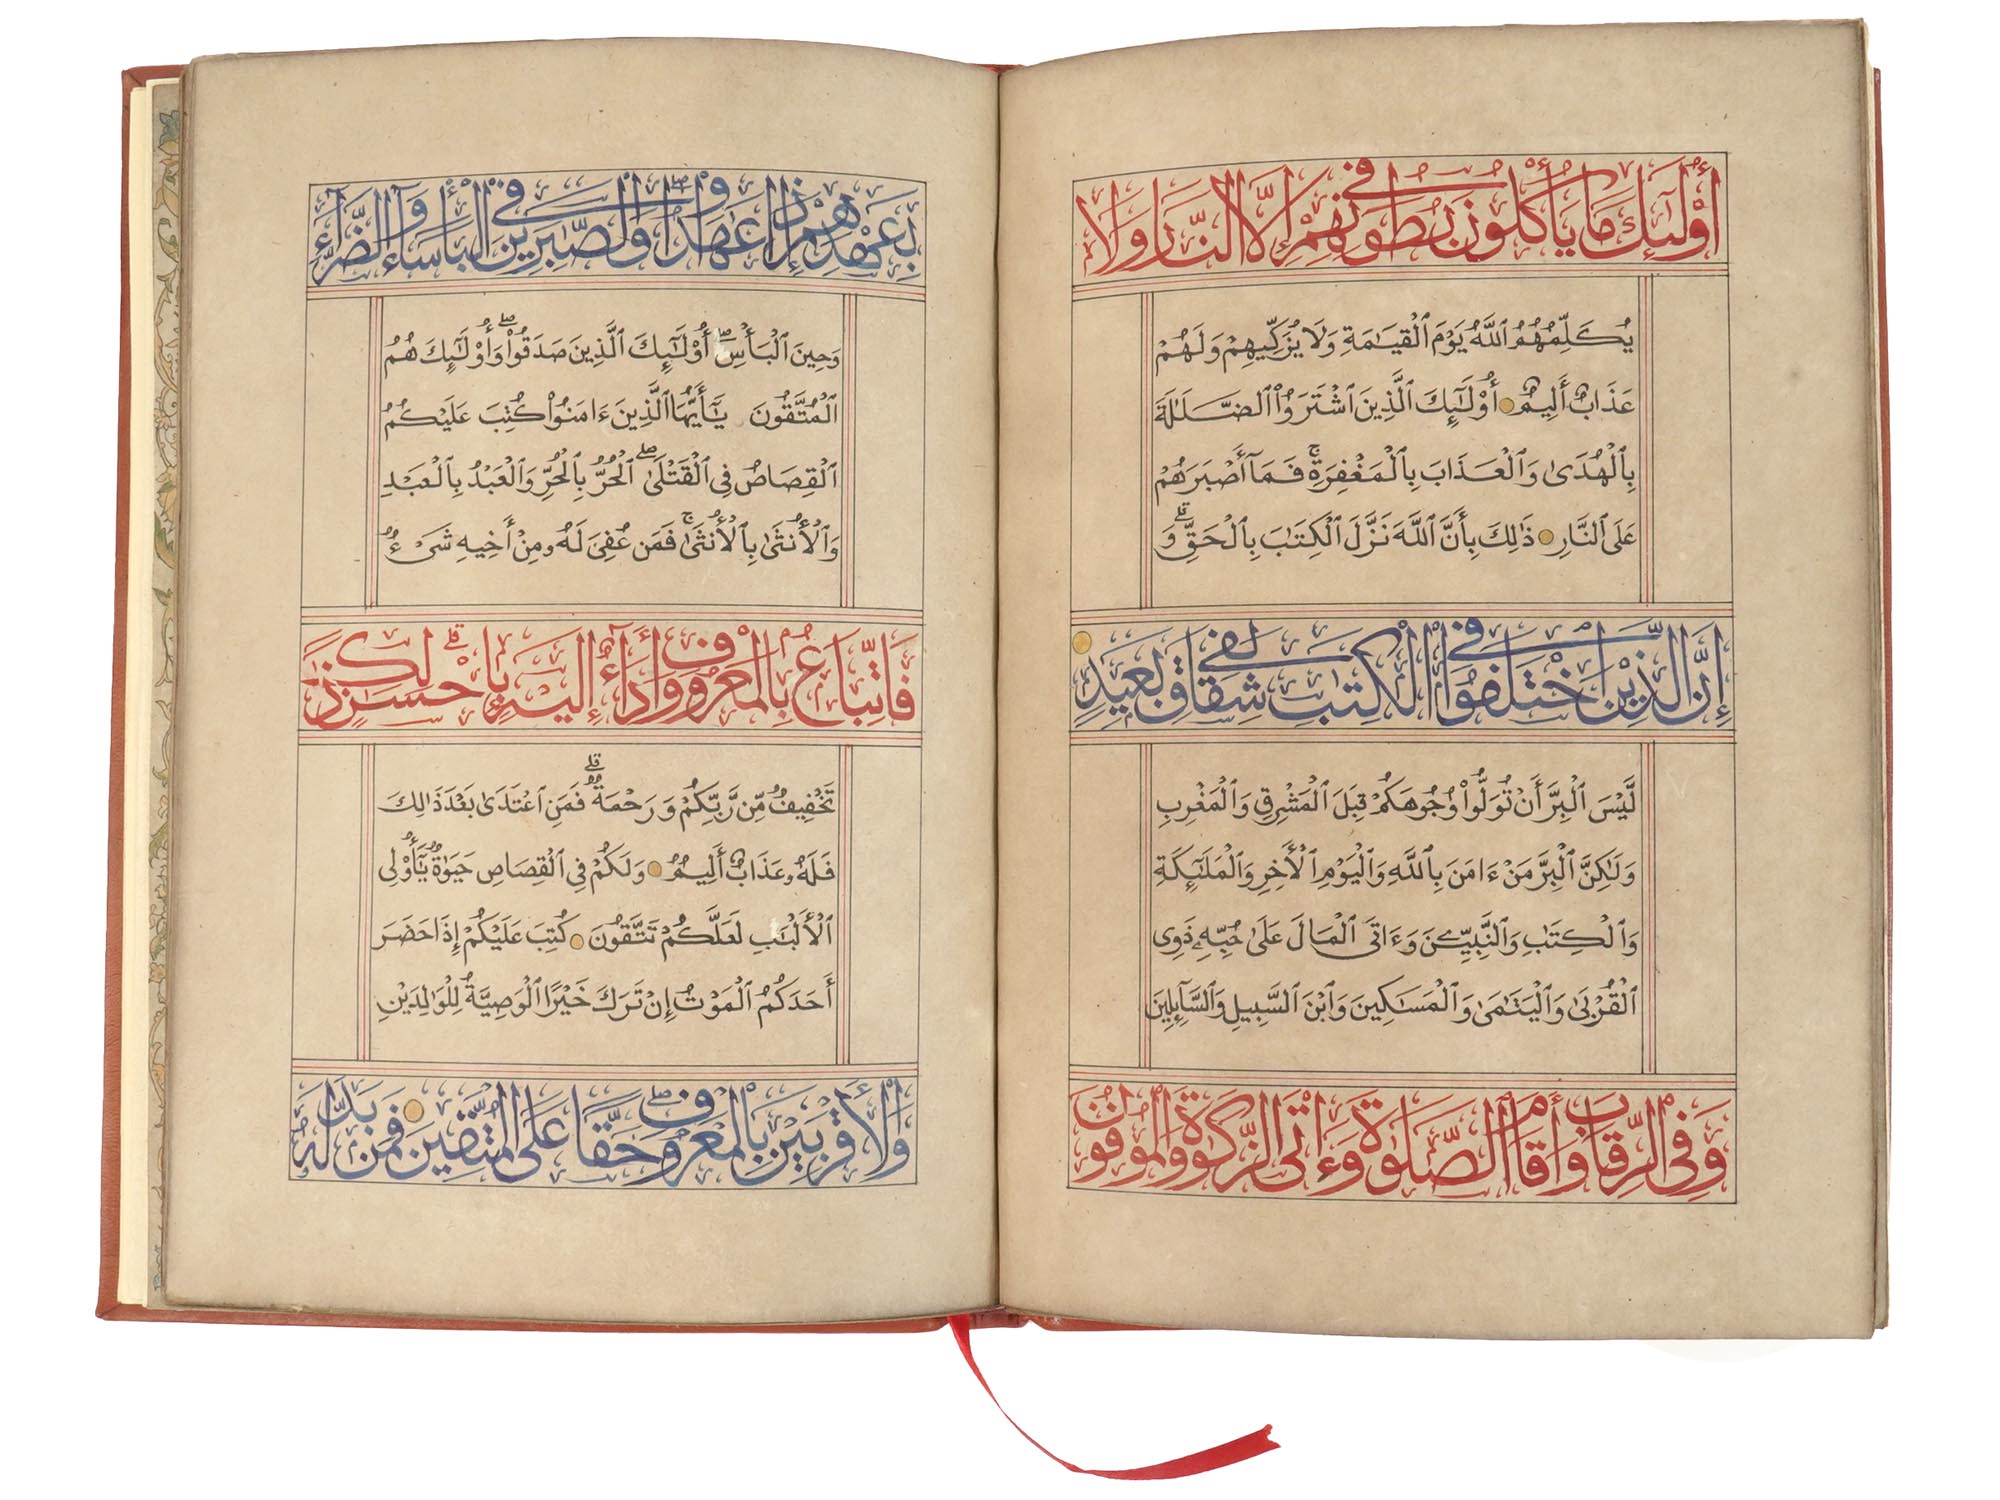 أُوْلَٰٓئِكَ مَا يَأۡكُلُونَ فِي بُطُونِهِمۡ إِلَّا ٱلنَّارَ وَلَا
يُكَلِّمُهُمُ ٱللَّهُ يَوۡمَ ٱلۡقِيَٰمَةِ وَلَا يُزَكِّيهِمۡ وَلَهُمۡ
عَذَابٌ أَلِيمٌ أُوْلَٰٓئِكَ ٱلَّذِينَ ٱشۡتَرَوُاْ ٱلضَّلَٰلَةَ
بِٱلۡهُدَىٰ وَٱلۡعَذَابَ بِٱلۡمَغۡفِرَةِۚ فَمَآ أَصۡبَرَهُمۡ
عَلَى ٱلنَّارِ ذَٰلِكَ بِأَنَّ ٱللَّهَ نَزَّلَ ٱلۡكِتَٰبَ بِٱلۡحَقِّۗ وَ
إِنَّ ٱلَّذِينَ ٱخۡتَلَفُواْ فِي ٱلۡكِتَٰبِ لَفِي شِقَاقِۭ بَعِيدٖ
لَّيۡسَ ٱلۡبِرَّ أَنۡ تُوَلُّواْ وُجُوهَكُمۡ قِبَلَ ٱلۡمَشۡرِقِ وَٱلۡمَغۡرِبِ
وَلَٰكِنَّ ٱلۡبِرَّ مَنۡ ءَامَنَ بِٱللَّهِ وَٱلۡيَوۡمِ ٱلۡأٓخِرِ وَٱلۡمَلَٰٓئِكَةِ
وَٱلۡكِتَٰبِ وَٱلنَّبِيِّـۧنَ وَءَاتَى ٱلۡمَالَ عَلَىٰ حُبِّهِۦ ذَوِي
ٱلۡقُرۡبَىٰ وَٱلۡيَتَٰمَىٰ وَٱلۡمَسَٰكِينَ وَٱبۡنَ ٱلسَّبِيلِ وَٱلسَّآئِلِينَ
وَفِي ٱلرِّقَابِ وَأَقَامَ ٱلصَّلَوٰةَ وَءَاتَى ٱلزَّكَوٰةَ وَٱلۡمُوفُونَ
بِعَهۡدِهِمۡ إِذَا عَٰهَدُواْۖ وَٱلصَّٰبِرِينَ فِي ٱلۡبَأۡسَآءِ وَٱلضَّرَّآءِ
وَحِينَ ٱلۡبَأۡسِۖ أُوْلَٰٓئِكَ ٱلَّذِينَ صَدَقُواْۖ وَأُوْلَٰٓئِكَ هُمُ
ٱلۡمُتَّقُونَ يَٰٓأَيُّهَا ٱلَّذِينَ ءَامَنُواْ كُتِبَ عَلَيۡكُمُ
ٱلۡقِصَاصُ فِي ٱلۡقَتۡلَىۖ ٱلۡحُرُّ بِٱلۡحُرِّ وَٱلۡعَبۡدُ بِٱلۡعَبۡدِ
وَٱلۡأُنثَىٰ بِٱلۡأُنثَىٰۚ فَمَنۡ عُفِيَ لَهُۥ مِنۡ أَخِيهِ شَيۡءٌ
فَٱتِّبَاعُۢ بِٱلۡمَعۡرُوفِ وَأَدَآءٌ إِلَيۡهِ بِإِحۡسَٰنٖۗ ذَٰلِكَ
تَخۡفِيفٌ مِّن رَّبِّكُمۡ وَرَحۡمَةٌۗ فَمَنِ ٱعۡتَدَىٰ بَعۡدَ ذَٰلِكَ
فَلَهُۥ عَذَابٌ أَلِيمٌ وَلَكُمۡ فِي ٱلۡقِصَاصِ حَيَوٰةٌ يَٰٓأُوْلِي
ٱلۡأَلۡبَٰبِ لَعَلَّكُمۡ تَتَّقُونَ كُتِبَ عَلَيۡكُمۡ إِذَا حَضَرَ
أَحَدَكُمُ ٱلۡمَوۡتُ إِنۡ تَرَكَ خَيۡرًا ٱلۡوَصِيَّةُ لِلۡوَٰلِدَيۡنِ
وَٱلۡأَقۡرَبِينَ بِٱلۡمَعۡرُوفِۖ حَقًّا عَلَى ٱلۡمُتَّقِينَ فَمَنۢ بَدَّلَهُۥ